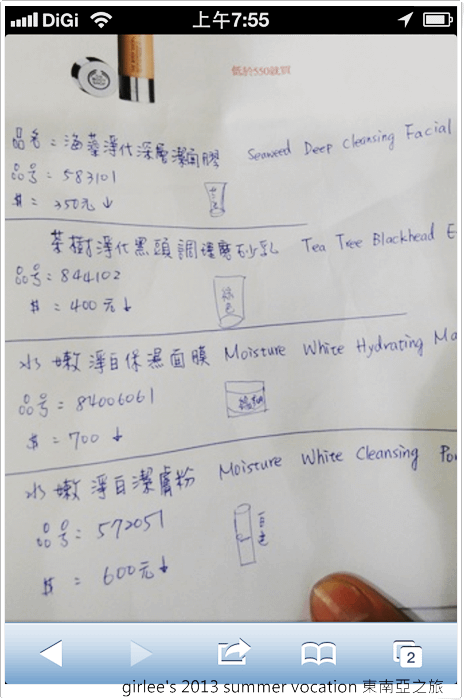 DiGi 上午7:55
低於550就買
品名：海藻淨化深層潔面膠 Seaweed Deep Cleansing Facial
品号：583101
$ = 350元↓
茶樹淨化黑頭調理磨砂乳 Tea Tree Blackhead E
品号=844102
綠色
$ = 400元↓
水嫩淨白保濕面膜 Moisture White Hydrating Ma
品号=84006061
$ = 700 ↓
水嫩淨白潔膚粉 Moisture White Cleansing Po
品号：572051
白色
$ = 600元↓
2
girlee's 2013 summer vocation 東南亞之旅